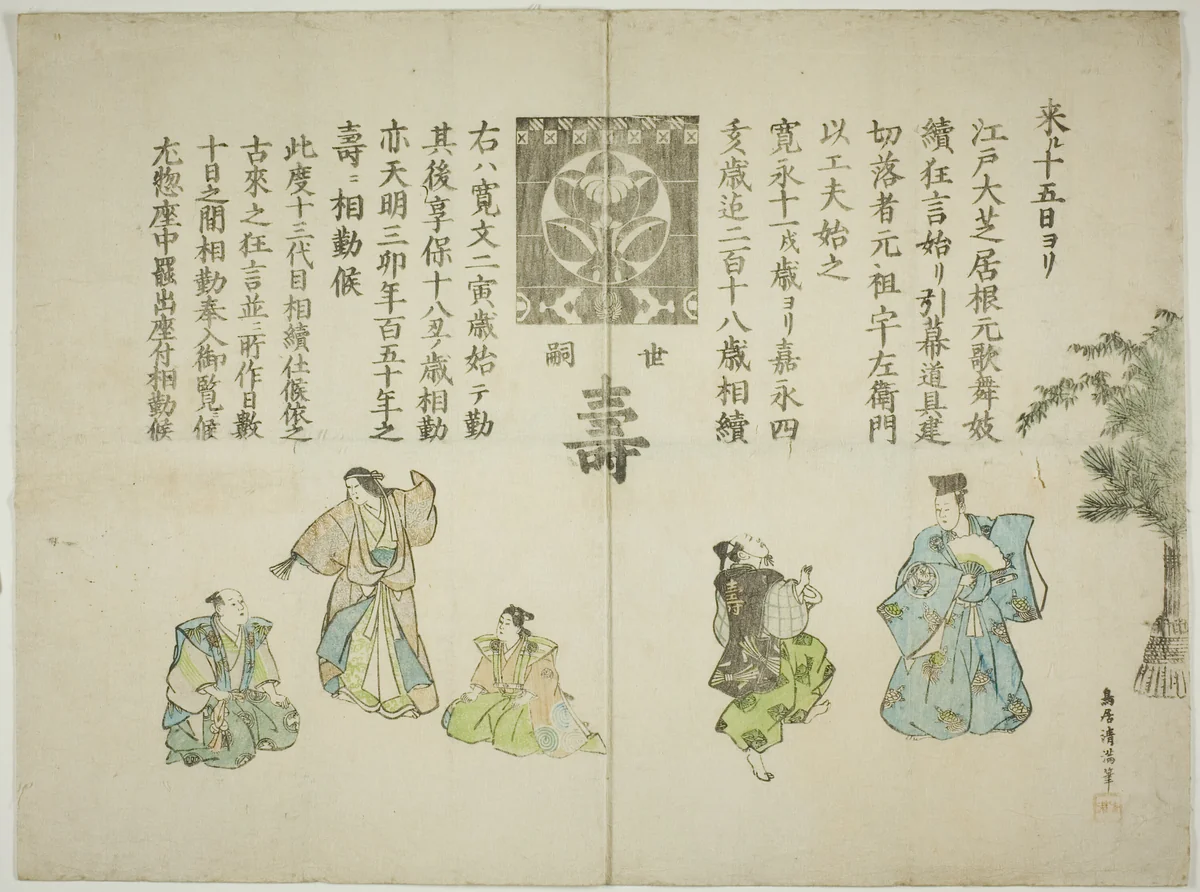 来ル十五日ヨリ
江戸大芝居根元歌舞妓
續狂言始リ引幕道具建
切落者元祖宇左衛門
以工夫始之
寛永十一戌歳ヨリ嘉永四
亥歳迠二百十八歳相續
世嗣
壽
右ハ寛文二寅歳始テ勤
其後享保十八丑ノ歳相勤
亦天明三卯年百五十年之
壽ニ相勤候
此度十三代目相續仕候依之
古來之狂言並ニ所作日數
十日之間相勤奉入御覧ニ候
尤惣座中罷出座付相勤候
壽
鳥居清満筆